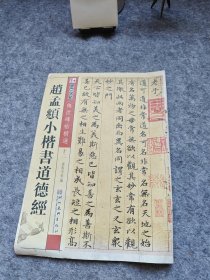 趙孟頫小楷書道德經
老子
道可道非常道名可名非常名無名天地始
有名萬物母常無欲以觀其妙常有欲以觀其
徼此兩者同出而異名同謂之玄玄之又玄衆
妙之門
天下皆知美之為美斯惡已皆知善之為善斯不
善已故有無之相生難易之相成長短之相形高